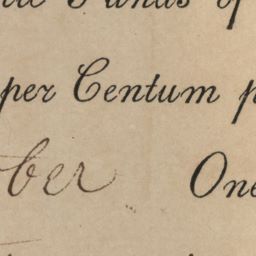 Funds of
per Centum p
ber One